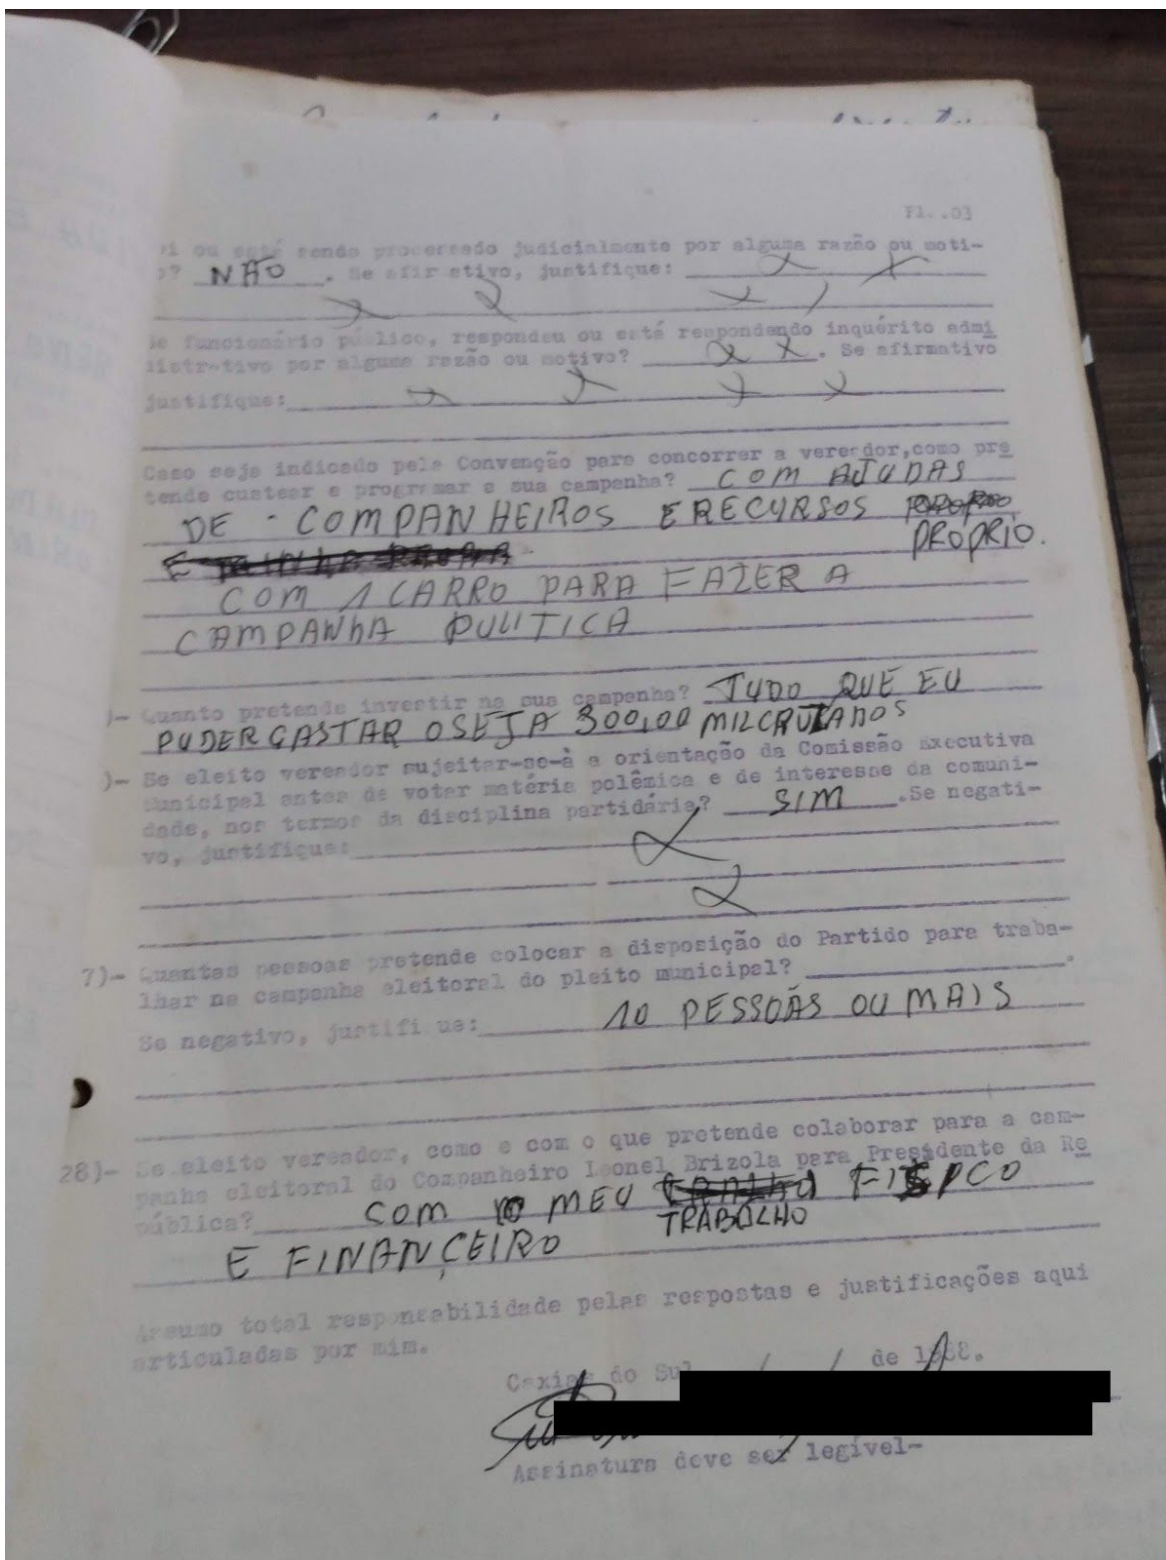 Fl..03
i ou está sendo processado judicialmente por alguma razão ou moti-
o? NÃO . Se afir ativo, justifique: X X
X X X X
e funcionário público, respondeu ou está respondendo inquérito admi
istrativo por alguma razão ou motivo? X X . Se afirmativo
justifique: X X X X
Caso seja indicado pela Convenção para concorrer a vereador,como pre
tende custear e programar a sua campanha? COM AJUDAS
DE - COMPANHEIROS E RECURSOS
PROPRIO.
COM 1 CARRO PARA FAZER A
CAMPANHA PULITICA
)- Quanto pretende investir na sua campanha? TUDO QUE EU
PUDER GASTAR OSEJA 300,00 MILCRUZADOS
)- Se eleito vereador sujeitar-se-à a orientação da Comissão Executiva
Municipal antes de votar matéria polêmica e de interesse da comuni-
dade, nos termos da disciplina partidária? SIM .Se negati-
vo, justifique: X
X
7)- Quantas pessoas pretende colocar a disposição do Partido para traba-
lhar na campanha eleitoral do pleito municipal? .
Se negativo, justifi ue: 10 PESSOÃS OU MAIS
28)- Se eleito vereador, como e com o que pretende colaborar para a cam-
panha eleitoral do Companheiro Leonel Brizola para Presidente da Re
pública? COM O MEU FISPCO
TRABALHO
E FINANÇEIRO
Assumo total responsabilidade pelas respostas e justificações aqui
articuladas por mim.
Caxias do Sul / / de 1988.
Assinatura deve ser legível-